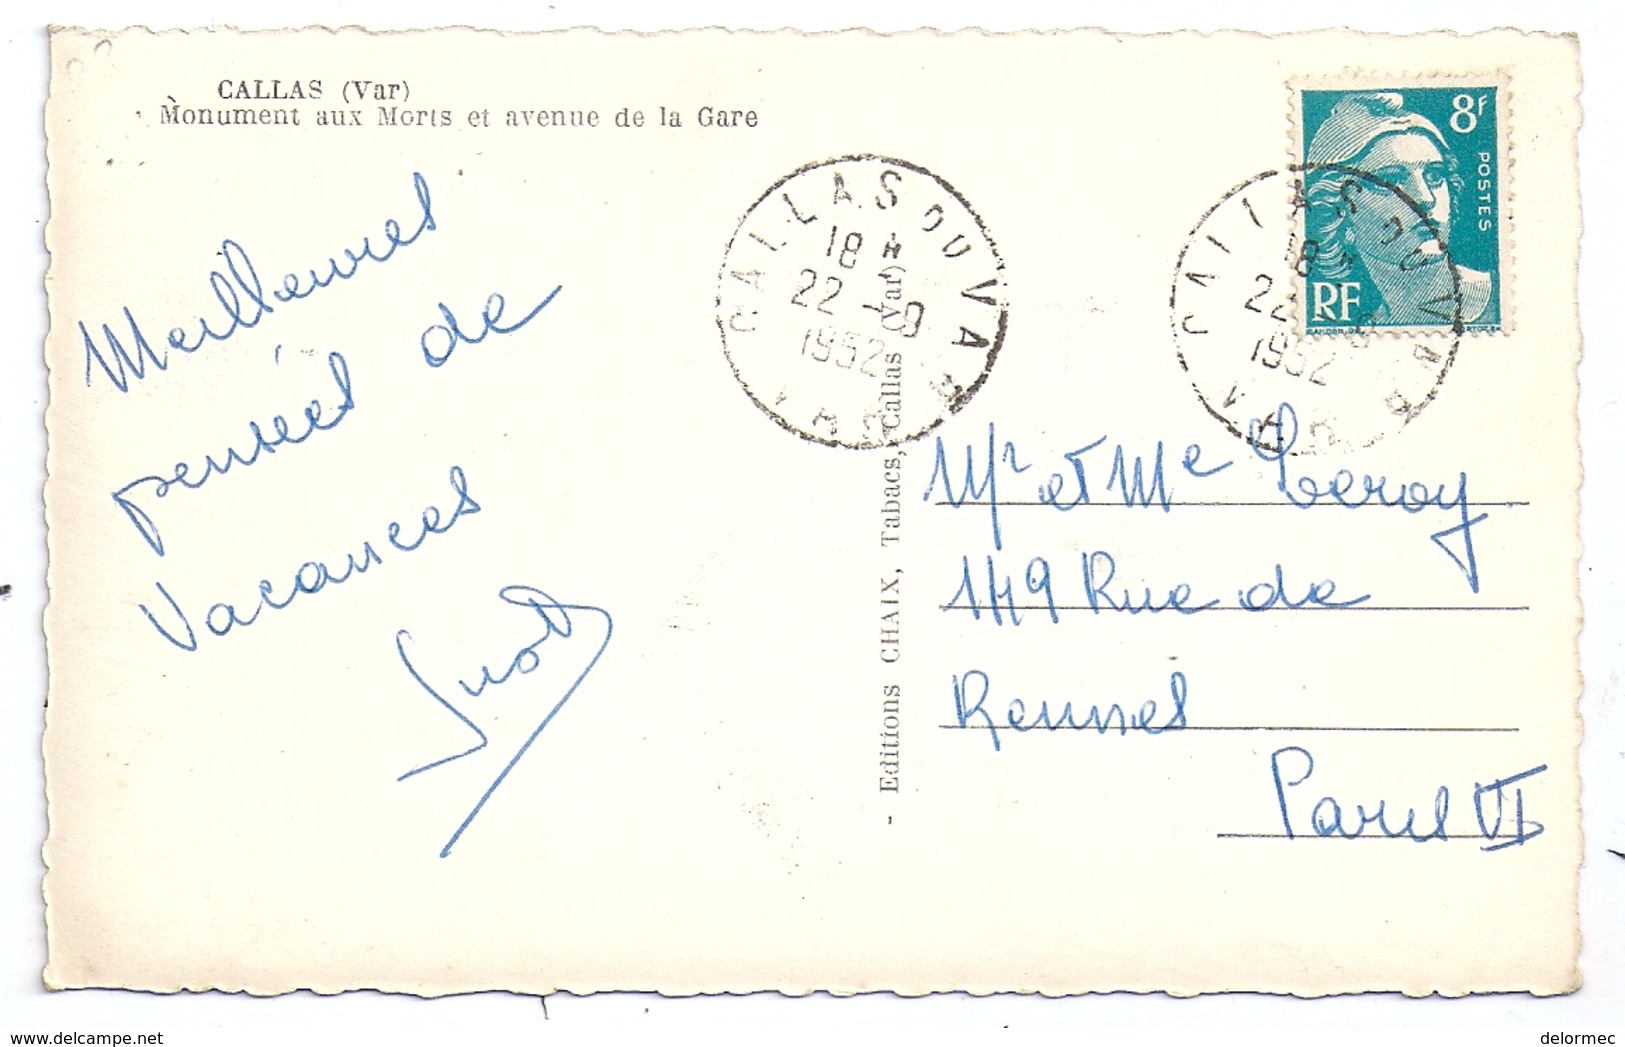 CALLAS (Var)
Monument aux Morts et avenue de la Gare
Meilleures
pensées de
Vacances
8F
POSTES
RF
CALLAS DU VAR
18 H
22 - 9
1952
VAR
CALLAS DU VAR
18 H
22 - 9
1952
VAR
- Editions CHAIX, Tabacs, Callas (Var)
Mr et Me Leroy
149 Rue de
Rennes
Paris VI
delcampe.net
delormec